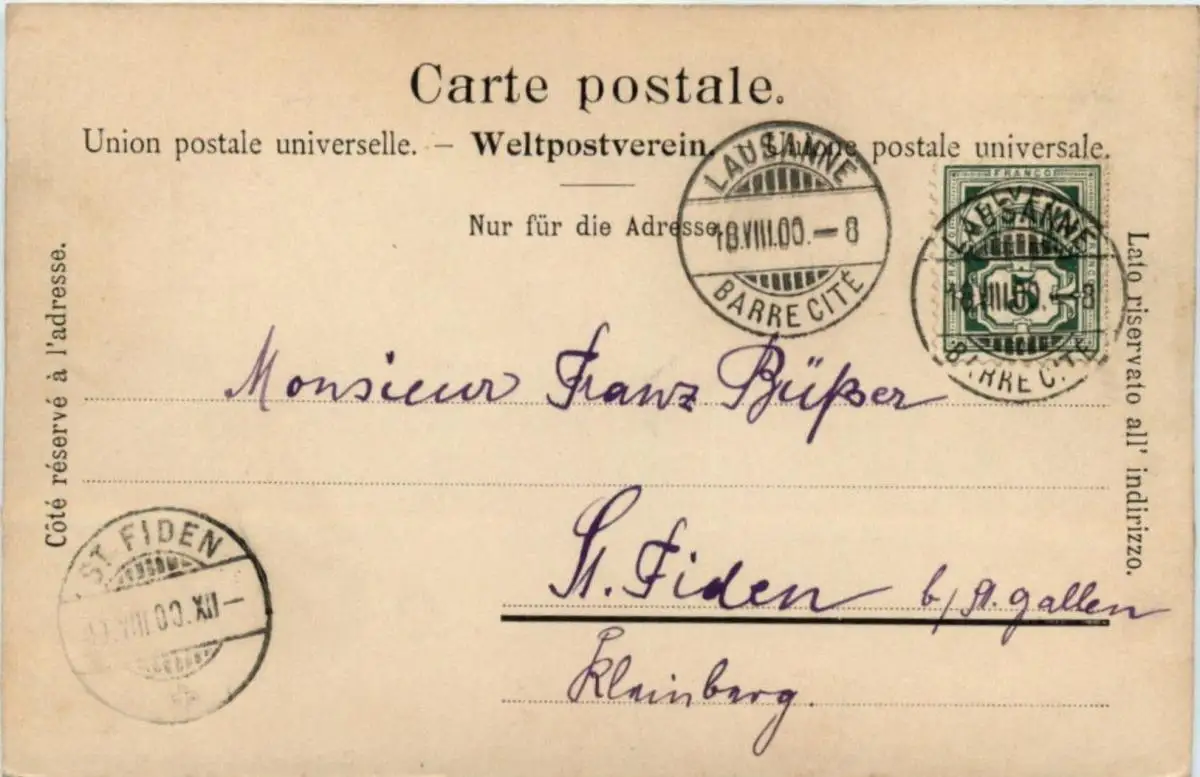 Carte postale.
Union postale universelle. — Weltpostverein. — Unione postale universale.
Nur für die Adresse.
Côté réservé à l'adresse.
Lato riservato all' indirizzo.
LAUSANNE
18.VIII.00.—8
BARRE CITÉ
FRANCO
HELVETIA
5
LAUSANNE
18.VIII.00.—8
BARRE CITÉ
Monsieur Franz Büßer
St. Fiden b/St. gallen
Kleinberg.
ST. FIDEN
VIII.00.XII—